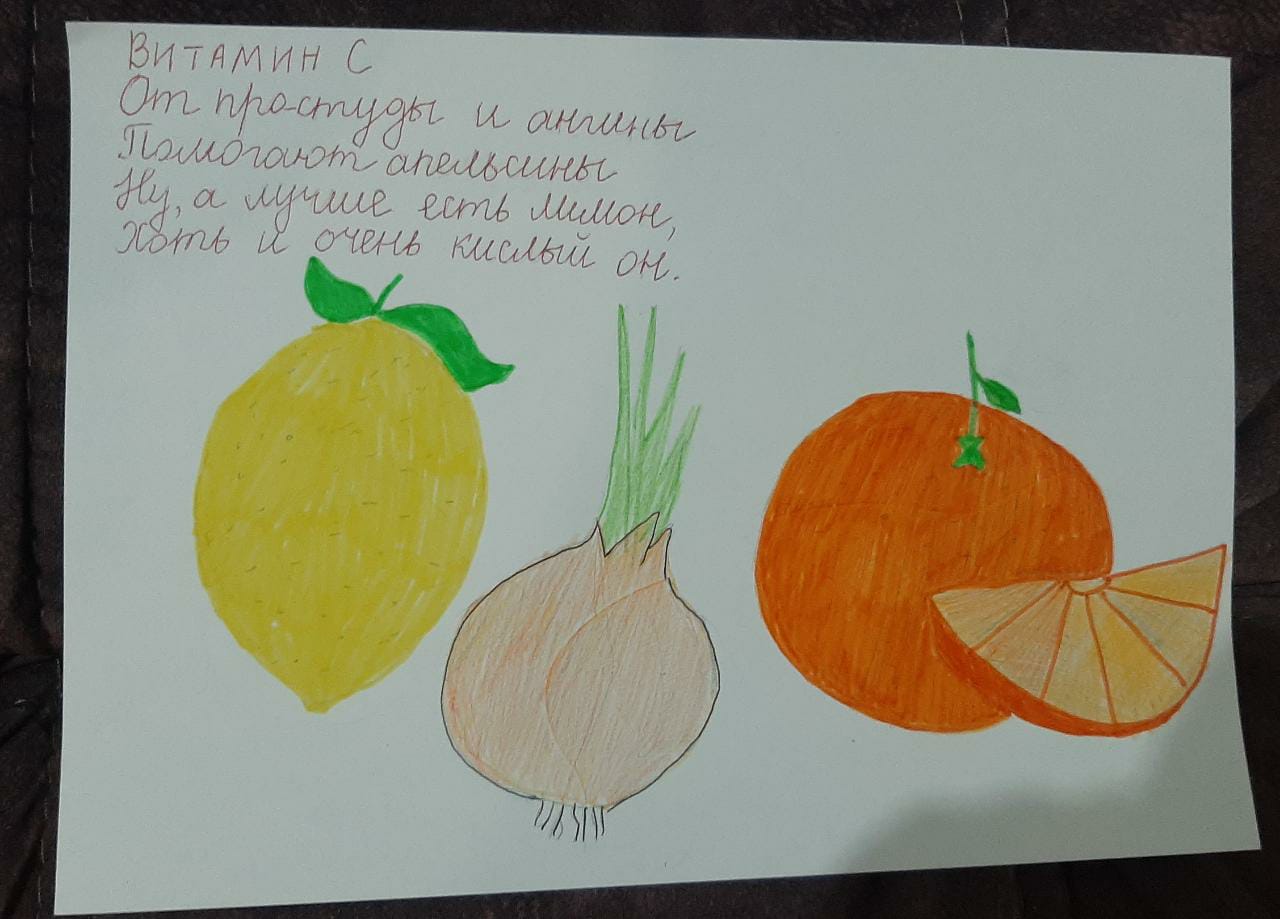 ВИТАМИН С
От простуды и ангины
Помогают апельсины
Ну, а лучше есть лимон,
Хоть и очень кислый он.